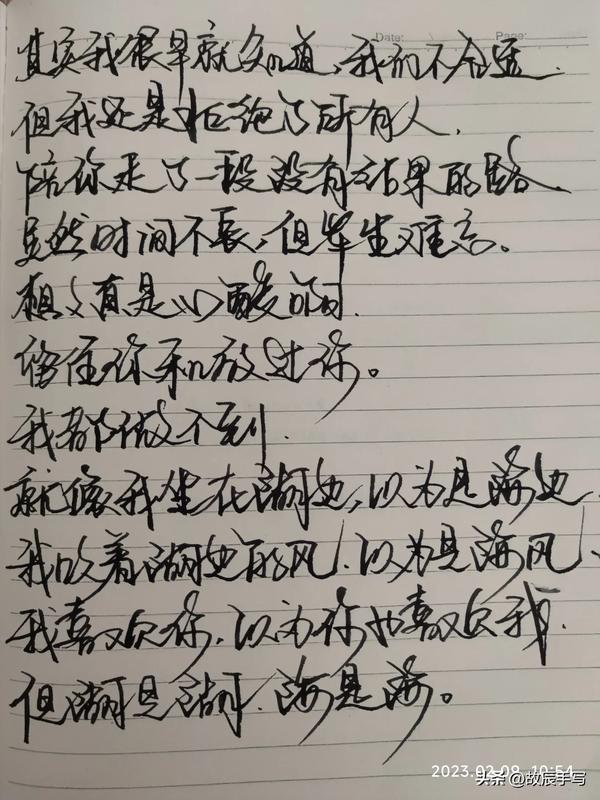 Date:
Page:
其实我很早就知道,我们不合适.
但我还是拒绝了所有人.
陪你走了一段没有结果的路.
虽然时间不长,但毕生难忘。
想义真是心酸啊.
留住你和放过你。
我都做不到.
就像我坐在湖边,以为是海边
我吹着湖边的风.以为是海风、
我喜欢你.以为你也喜欢我.
但湖是湖.海是海。
2023.02.09 10:54
头条 @故辰手写